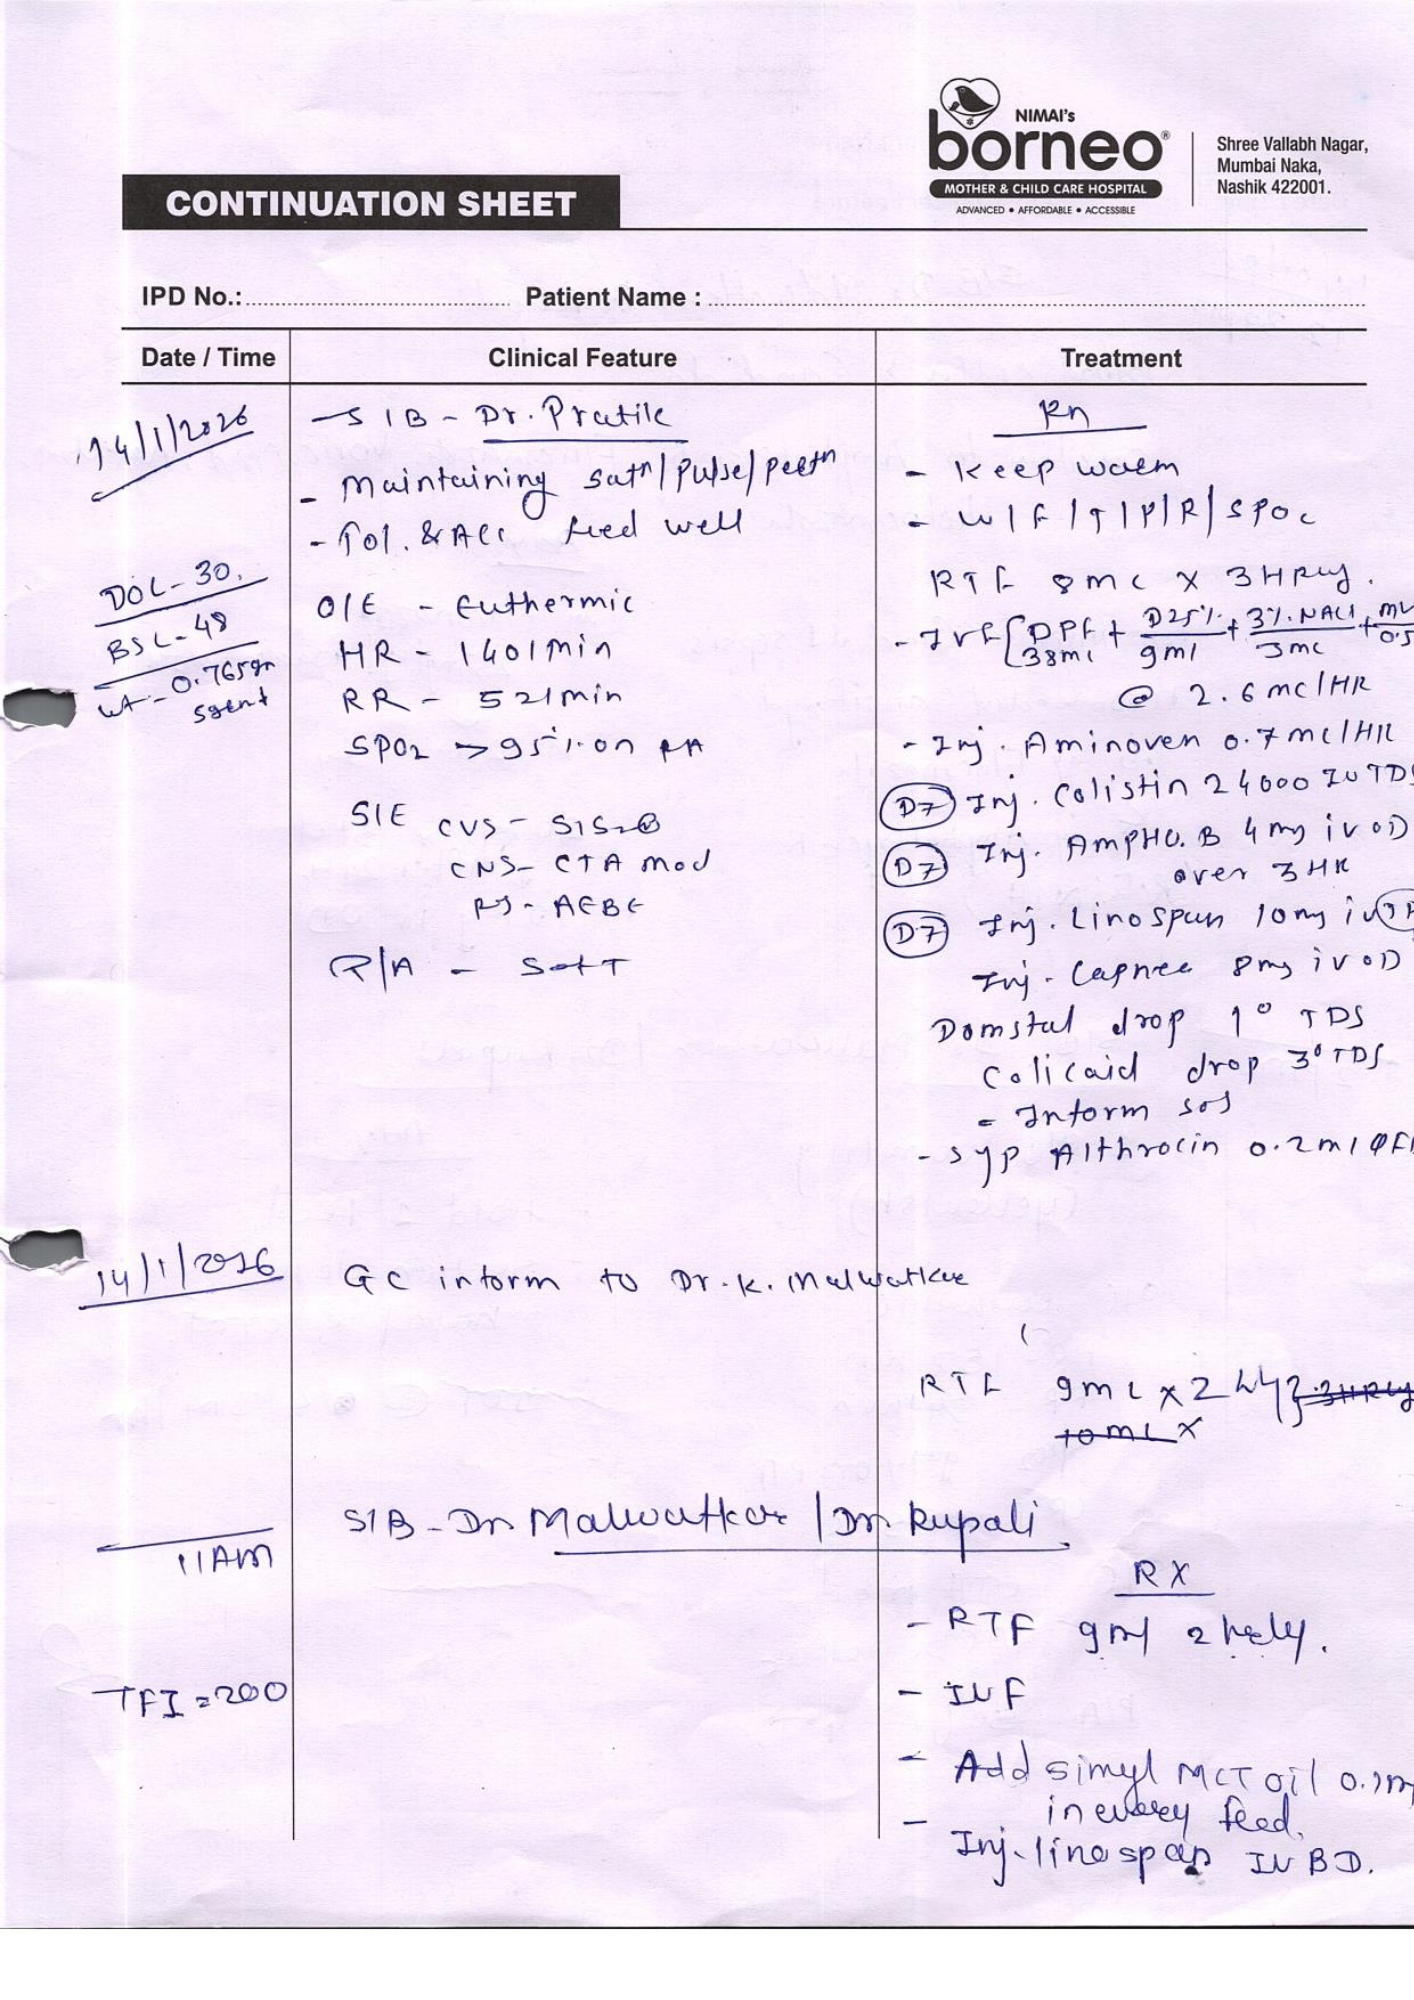 NIMAI's
borneo®
MOTHER & CHILD CARE HOSPITAL
ADVANCED • AFFORDABLE • ACCESSIBLE
Shree Vallabh Nagar,
Mumbai Naka,
Nashik 422001.
CONTINUATION SHEET
IPD No.: Patient Name :
Date / Time Clinical Feature Treatment
14/1/2026
S/B - Dr. Pratik
- Maintaining satn/pulse/perfn
- Tol. & Acc feed well
DOL - 30.
BSL - 48
wt - 0.765gn
O/E - Euthermic
HR - 140/min
RR - 52/min
SPO2 → 95% on RA
S/E CVS - S1S2
CNS - CTA mod
RS - AEBE
P/A - Soft
Rx
- Keep warm
- W/F/T/P/R/SPO2
RTF 8ml x 3HRly.
- IVF [DPF 38ml + D25% 9ml + 3% NACl 3ml + MV 0.5
@ 2.6ml/HR
- Inj. Aminoven 0.7ml/HR
D7 Inj. Colistin 24000 IU TDS
D7 Inj. AmPHO. B 4mg iv OD
over 3HR
D7 Inj. Linospan 10mg iv
Inj. Capnea 8mg iv OD
Domstal drop 1° TDS
Colicaid drop 3° TDS
- Inform sos
- Syp Althrocin 0.2ml
14/1/2026 GC inform to Dr. K. Malwatkar
RTF 9ml x 2hly 3HRly
10ml x
S/B - Dr Malwatkar / Dr Rupali
11AM
RX
- RTF 9ml 2hrly.
TFI = 200
- IVF
- Add simyl MCT oil
in every feed.
- Inj. linospan IV BD.